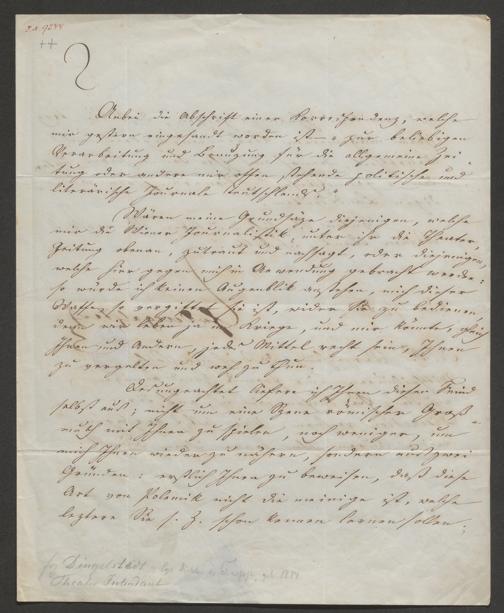 I.N. 9244
++
2
Anbei die Abschrift einer Korrespondenz, welche
mir gestern eingesandt worden ist zur beliebigen
Verarbeitung und Benuzung für die allgemeine Zei-
tung oder andere mir offen stehende politische und
literärische Journale Deutschlands.
Wären meine Grundsäze diejenigen, welche
mir die Wiener Journalistik, unter ihr die Theater-
Zeitung obenan, zutraut und nachsagt, oder diejenigen,
welche hier gegen mich in Anwendung gebracht werden:
so würde ich keinen Augenblik anstehen, mich dieser
Waffe, so vergiftet sie ist, wider Sie zu bedienen,
denn wir leben ja im Kriege, und mir könnte, gleich
Ihnen und Andern, jedes Mittel recht sein, Ihnen
zu vergelten und weh zu thun.
Dessungeachtet liefere ich Ihnen diesen Fund
selbst aus; nicht um eine Szene römischer Groß-
muth mit Ihnen zu spielen, noch weniger, um
mich Ihnen wieder zu nähern, sondern aus zwei
Gründen: erstlich Ihnen zu beweisen, daß diese
Art von Polemik nicht die meinige ist, welche
leztere Sie s. Z. schon kennen lernen sollen;
Dingelstedt
Theater Intendant